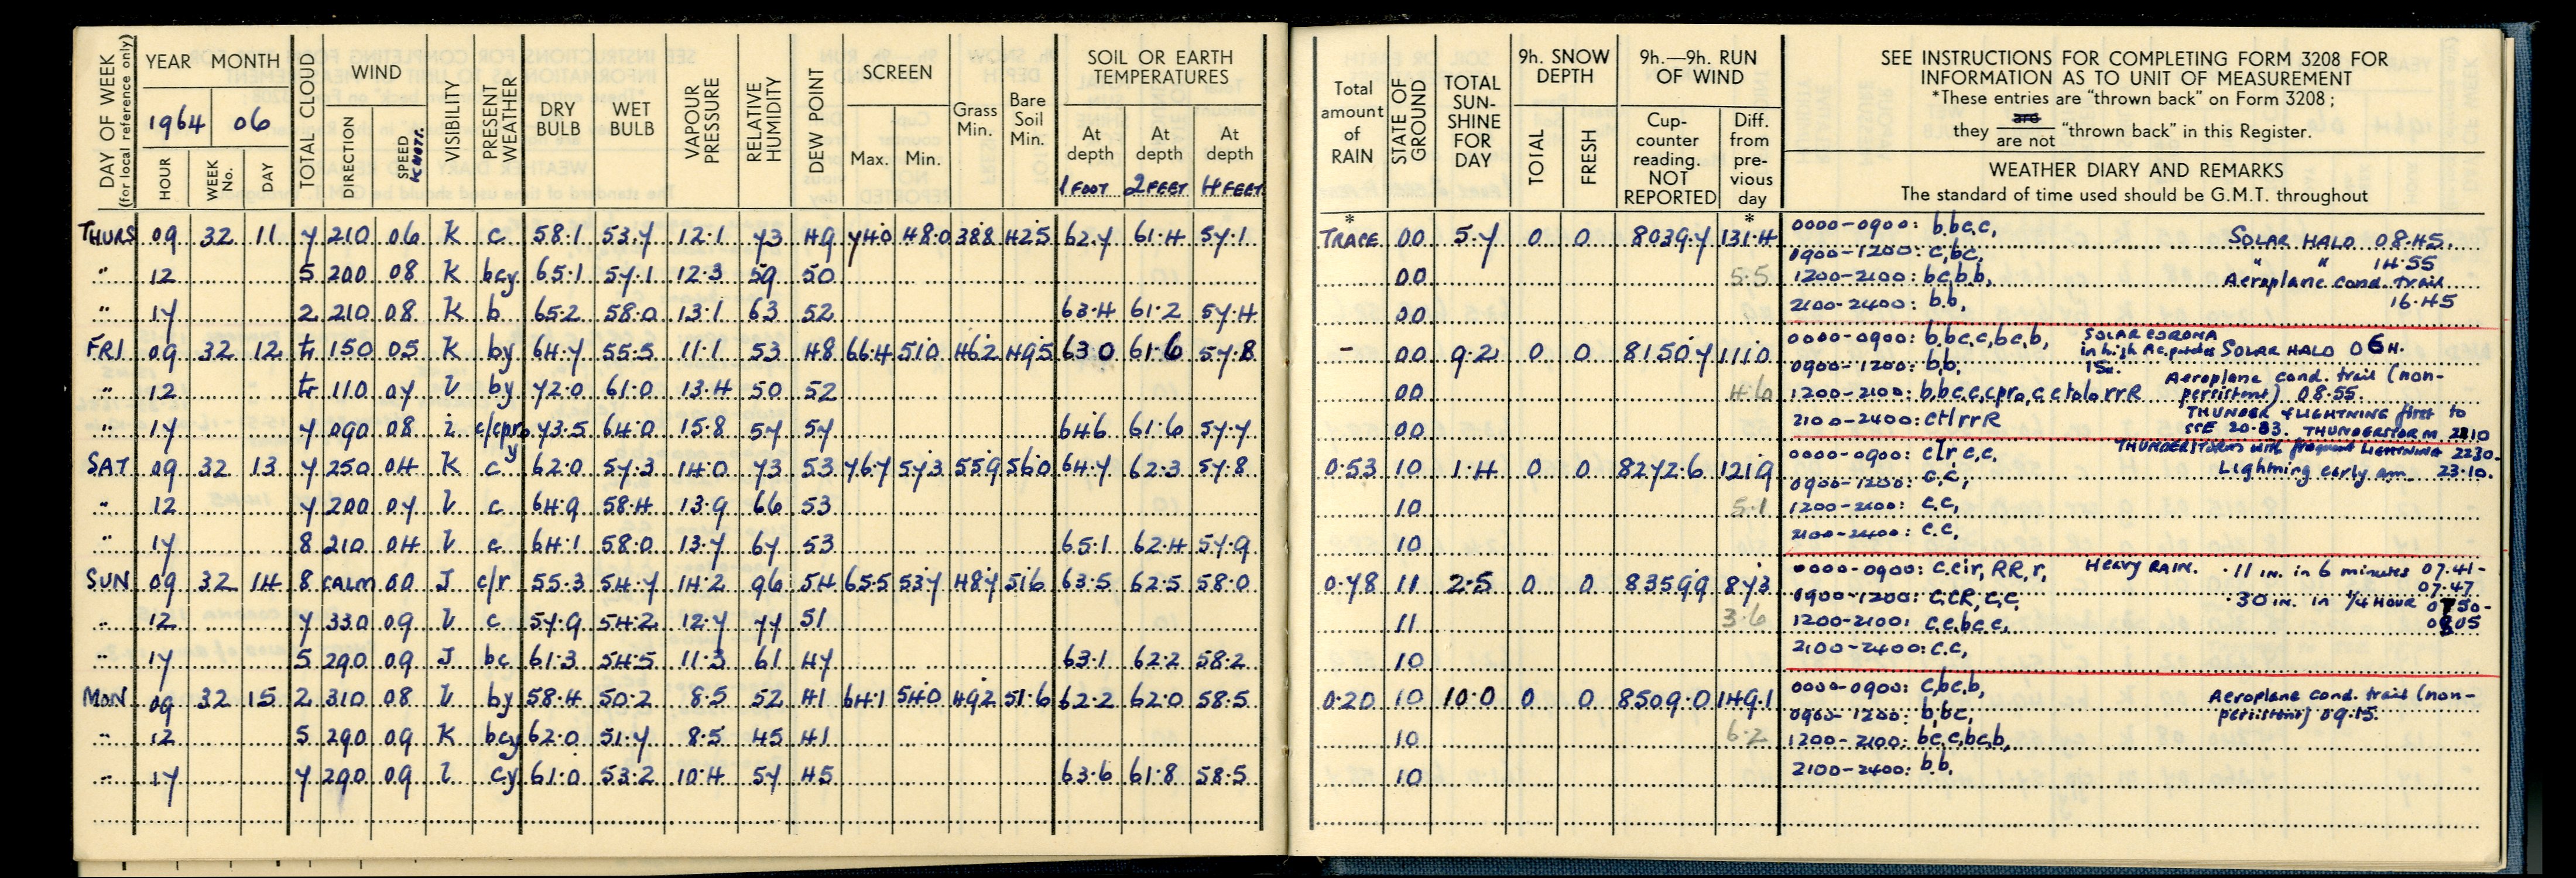 DAY OF WEEK (for local reference only) YEAR MONTH TOTAL CLOUD WIND VISIBILITY PRESENT WEATHER DRY BULB WET BULB VAPOUR PRESSURE RELATIVE HUMIDITY DEW POINT SCREEN Grass Min. Bare Soil Min. SOIL OR EARTH TEMPERATURES
1964 06
HOUR WEEK No. DAY DIRECTION SPEED KNOTS. Max. Min. At depth 1 FOOT At depth 2 FEET At depth 4 FEET
Total amount of RAIN STATE OF GROUND TOTAL SUN-SHINE FOR DAY 9h. SNOW DEPTH TOTAL FRESH 9h.—9h. RUN OF WIND Cup-counter reading. NOT REPORTED Diff. from pre-vious day
SEE INSTRUCTIONS FOR COMPLETING FORM 3208 FOR
INFORMATION AS TO UNIT OF MEASUREMENT
*These entries are "thrown back" on Form 3208;
they are are not "thrown back" in this Register.
WEATHER DIARY AND REMARKS
The standard of time used should be G.M.T. throughout
* *
THURS 09 32 11 7 210 06 K c 58.1 53.7 12.1 73 49 74.0 48.0 38.8 42.5 62.7 61.4 57.1 TRACE 00 5.7 0 0 8039.7 131.4
0000-0900: b,bc,c, SOLAR HALO 08.45
0900-1200: c,bc, " " 14.55
" 12 5 200 08 K bcy 65.1 57.1 12.3 59 50 00 5.5
1200-2100: bc,b,b, Aeroplane cond. trail
" 17 2 210 08 K b 65.2 58.0 13.1 63 52 63.4 61.2 57.4 00
2100-2400: b,b, 16.45
FRI 09 32 12 tr 150 05 K by 64.7 55.5 11.1 53 48 66.4 51.0 46.2 49.5 63.0 61.6 57.8 - 00 9.2 0 0 8150.7 111.0
0000-0900: b,bc,c,bc,b, SOLAR CORONA in high Ac. SOLAR HALO 06H.
0900-1200: b,b,
" 12 tr 110 07 l by 72.0 61.0 13.4 50 52 00 4.6
1200-2100: b,bc,c,cpro,c,ctolo,rrR Aeroplane cond. trail (non-persistent) 08.55
" 17 7 090 08 i c/cpro y 73.5 64.0 15.8 57 57 64.6 61.6 57.7 00
2100-2400: ctlrrR THUNDER & LIGHTNING first to
SSE 20.83. THUNDERSTORM 2210
SAT 09 32 13 7 250 04 K c 62.0 57.3 14.0 73 53 76.7 57.3 55.9 56.0 64.7 62.3 57.8 0.53 10 1.4 0 0 8272.6 121.9
THUNDERSTORM with frequent LIGHTNING 2230-
0000-0900: clr,c,c, Lightning early am 23.10.
0900-1200: c,c,
" 12 7 200 07 l c 64.9 58.4 13.9 66 53 10 5.1
1200-2100: c,c,
" 17 8 210 04 l c 64.1 58.0 13.7 67 53 65.1 62.4 57.9 10
2100-2400: c.c,
SUN 09 32 14 8 CALM 00 J c/r 55.3 54.7 14.2 96 54 65.5 53.7 48.7 51.6 63.5 62.5 58.0 0.78 11 2.5 0 0 8359.9 87.3
0000-0900: c,cir,RR,r, HEAVY RAIN. .11 IN. in 6 minutes 07.41-07.47
0900-1200: c,cR,c,c, .30 IN. in 1/4 HOUR 0750-0805
" 12 7 330 09 l c 57.9 54.2 12.7 77 51 11 3.6
1200-2100: c,c,bc,c,
" 17 5 290 09 J bc 61.3 54.5 11.3 61 47 63.1 62.2 58.2 10
2100-2400: c.c,
MON 09 32 15 2 310 08 l by 58.4 50.2 8.5 52 41 64.1 54.0 49.2 51.6 62.2 62.0 58.5 0.20 10 10.0 0 0 8509.0 149.1
0000-0900: c,bc,b, Aeroplane cond. trail (non-
0900-1200: b,bc, persistent) 09.15.
" 12 5 290 09 K bcy 62.0 51.7 8.5 45 41 10 6.2
1200-2100: bc,c,bc,b,
" 17 7 290 09 l cy 61.0 53.2 10.4 57 45 63.6 61.8 58.5 10
2100-2400: b,b,